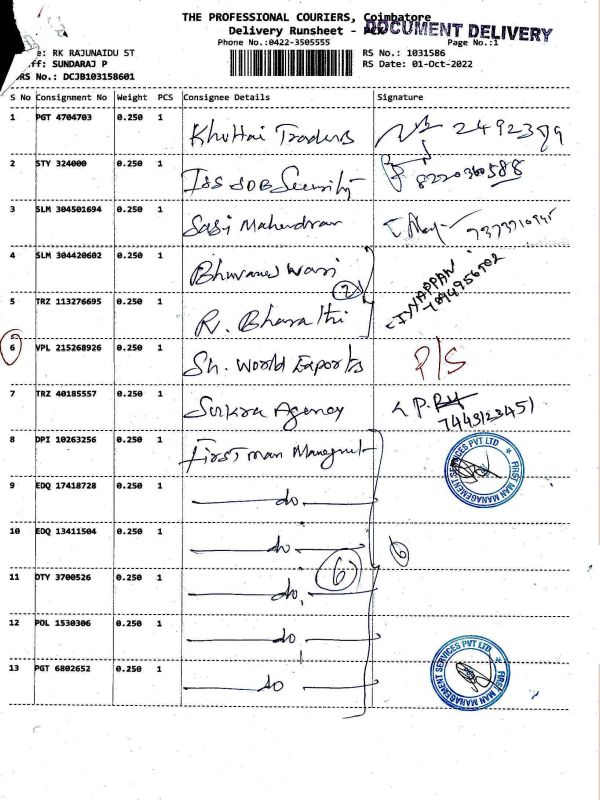 THE PROFESSIONAL COURIERS, Coimbatore
Delivery Runsheet -
DOCUMENT DELIVERY
Phone No.:0422-3505555
Page No.:1
: RK RAJUNAIDU ST
RS No.: 1031586
: SUNDARAJ P
RS Date: 01-Oct-2022
RS No.: DCJB103158601
S No Consignment No Weight PCS Consignee Details Signature
1 PGT 4704703 0.250 1 Traders
2 STY 324000 0.250 1 Security 8220360588
3 SLM 304501694 0.250 1 Sasi Mahendran
4 SLM 304420602 0.250 1 Bhuvaneswari
2 IYYAPPAN
5 TRZ 113276695 0.250 1 R. Bharathi
6 VPL 215268926 0.250 1 Sh. World Exports P/S
7 TRZ 40185557 0.250 1 Sukra Agency
8 DPI 10263256 0.250 1 First man
FIRST MAN MANAGEMENT SERVICES PVT LTD
9 EDQ 17418728 0.250 1 do
10 EDQ 13411504 0.250 1 do
6 6
11 DTY 3700526 0.250 1 do
12 POL 1530306 0.250 1 do
13 PGT 6802652 0.250 1 do
FIRST MAN MANAGEMENT SERVICES PVT LTD